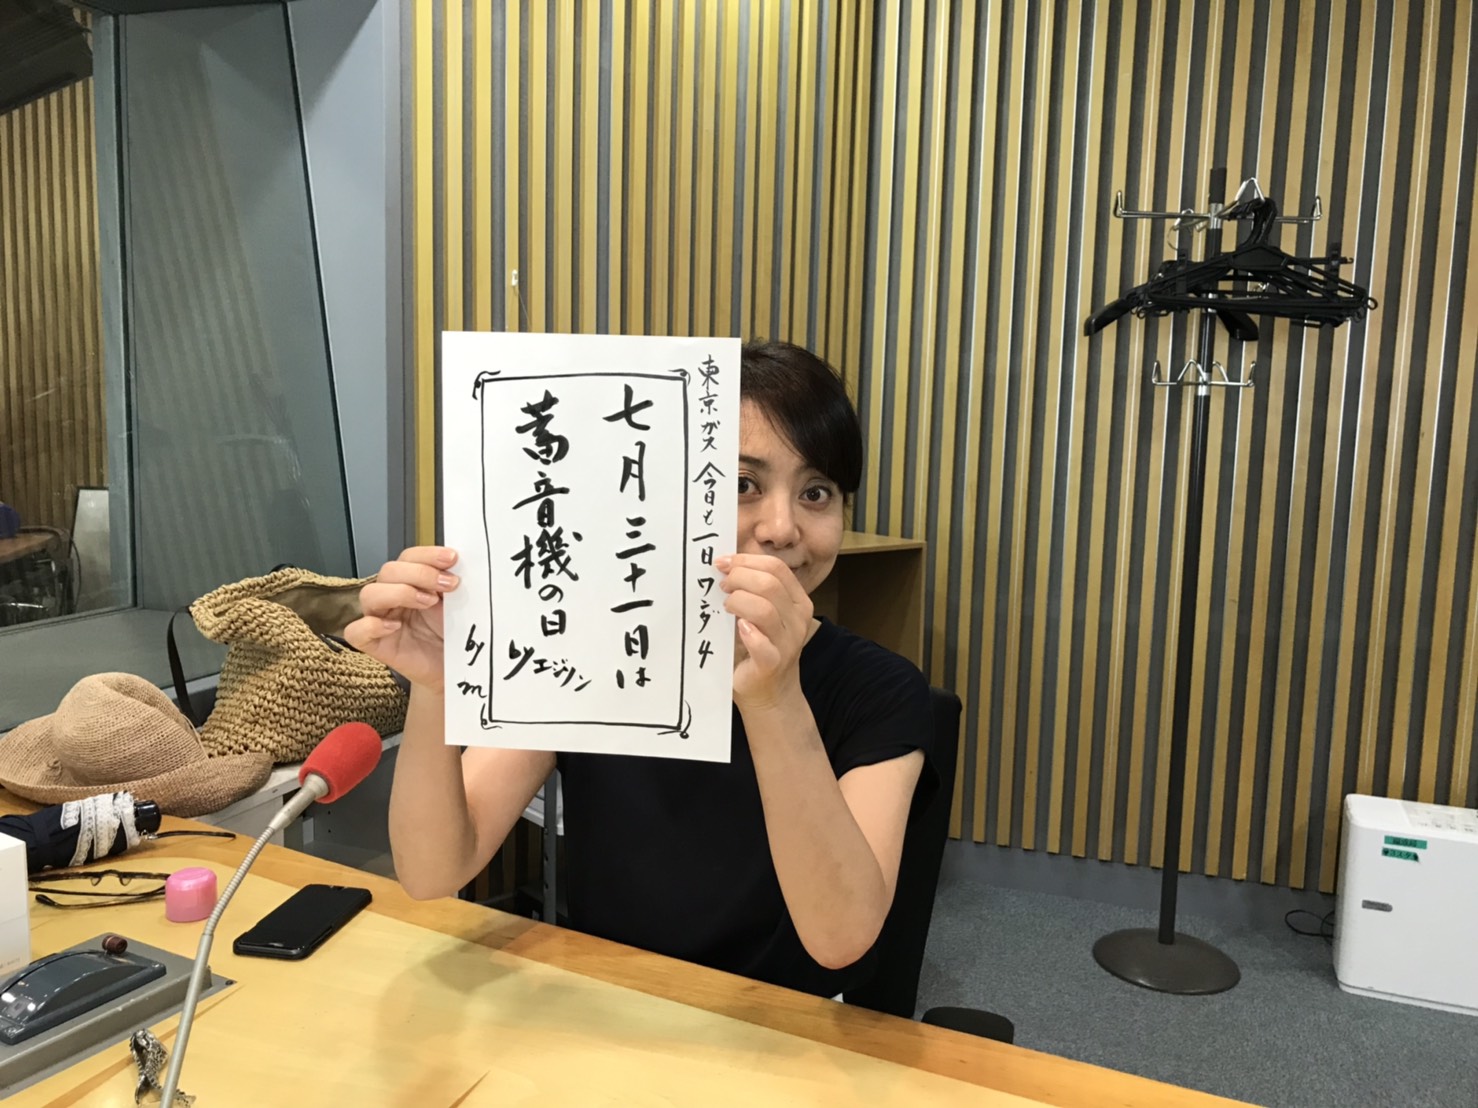 東京ガス 今日も一日ワンダ4
七月三十一日は
蓄音機の日
byエジソン
by m